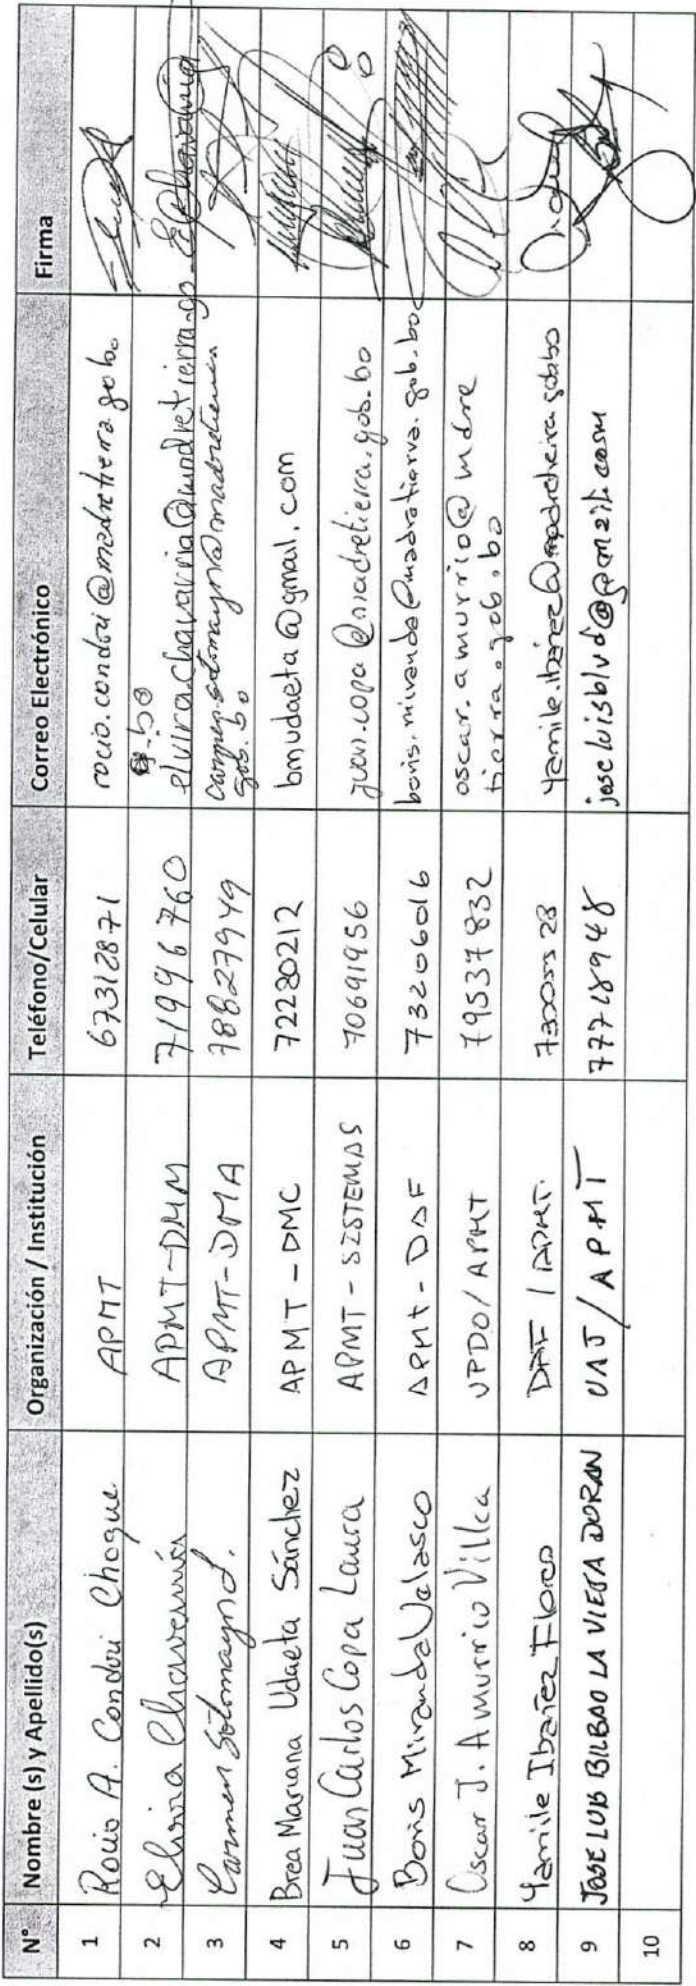 N° Nombre (s) y Apellido(s) Organización / Institución Teléfono/Celular Correo Electrónico Firma
1 Rocio A. Condori Choque APMT 67312871 rocio.condori@madretierra.gob.
2 Elvira Chavarría APMT-DMM 71996760 elvira.chavarria@madretierra.go
.bo
3 Carmen Sotomayor J. APMT-DMA 78827949 carmen.sotomayor@madretierra
gob.bo
4 Brea Mariana Udaeta Sánchez APMT - DMC 72230212 bmudaeta@gmail.com
5 Juan Carlos Copa Laura APMT - SISTEMAS 70691956 juan.copa@madretierra.gob.bo
6 Boris Miranda Velasco APMT - DAF 73206016 boris.miranda@madretierra.gob.bo
7 Oscar J. Amurrio Villca UPDO/APMT 79537832 oscar.amurrio@madre
tierra.gob.bo
8 Yamile Ibañez Flores DAF / APMT.
9 JOSE LUIS BILBAO LA VIEJA DORAN UAJ/APMT 77718948
10